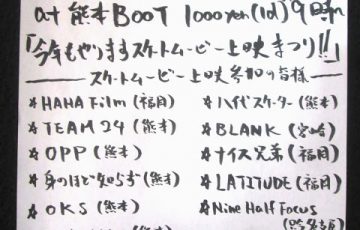 at 熊本BOOT 1000yen(1d) 9時〜
「今年もやりますスケートムービー上映まつり!!」
スケートムービー上映参加の皆様
☆HAHA Film(福岡)
☆TEAM 24(熊本)
☆OPP(熊本)
☆身のほど知らず(熊本)
☆OKS(熊本)
☆八代スケーター(熊本)
☆BLANK(宮崎)
☆ナイス兄弟(福岡)
☆LATITUDE(福岡)
☆Nine Half Focus